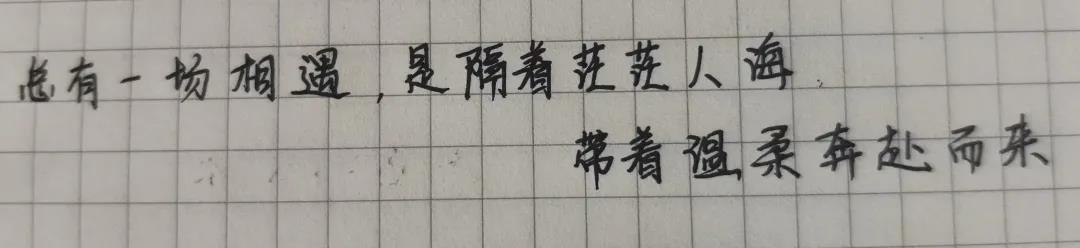 总有一场相遇,是隔着茫茫人海
带着温柔奔赴而来